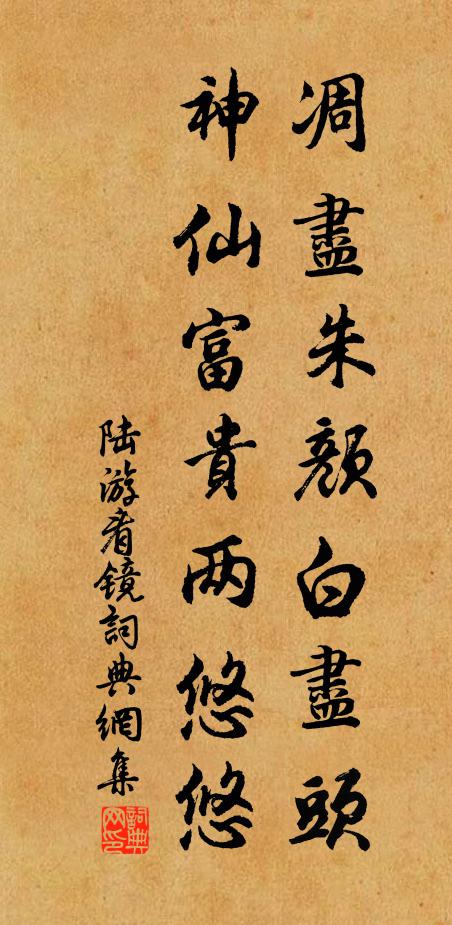 凋盡朱顏白盡頭
神仙富貴两悠悠
陆游看镜詞典網集
詞典网印